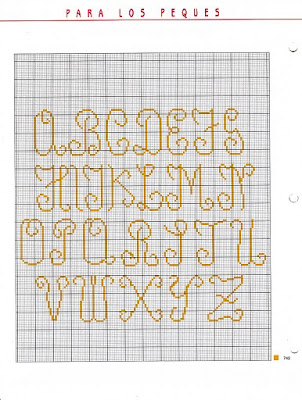 PARA LOS PEQUES
A B C D E F G
H I J K L M N
O P Q R S T U
V W X Y Z
740